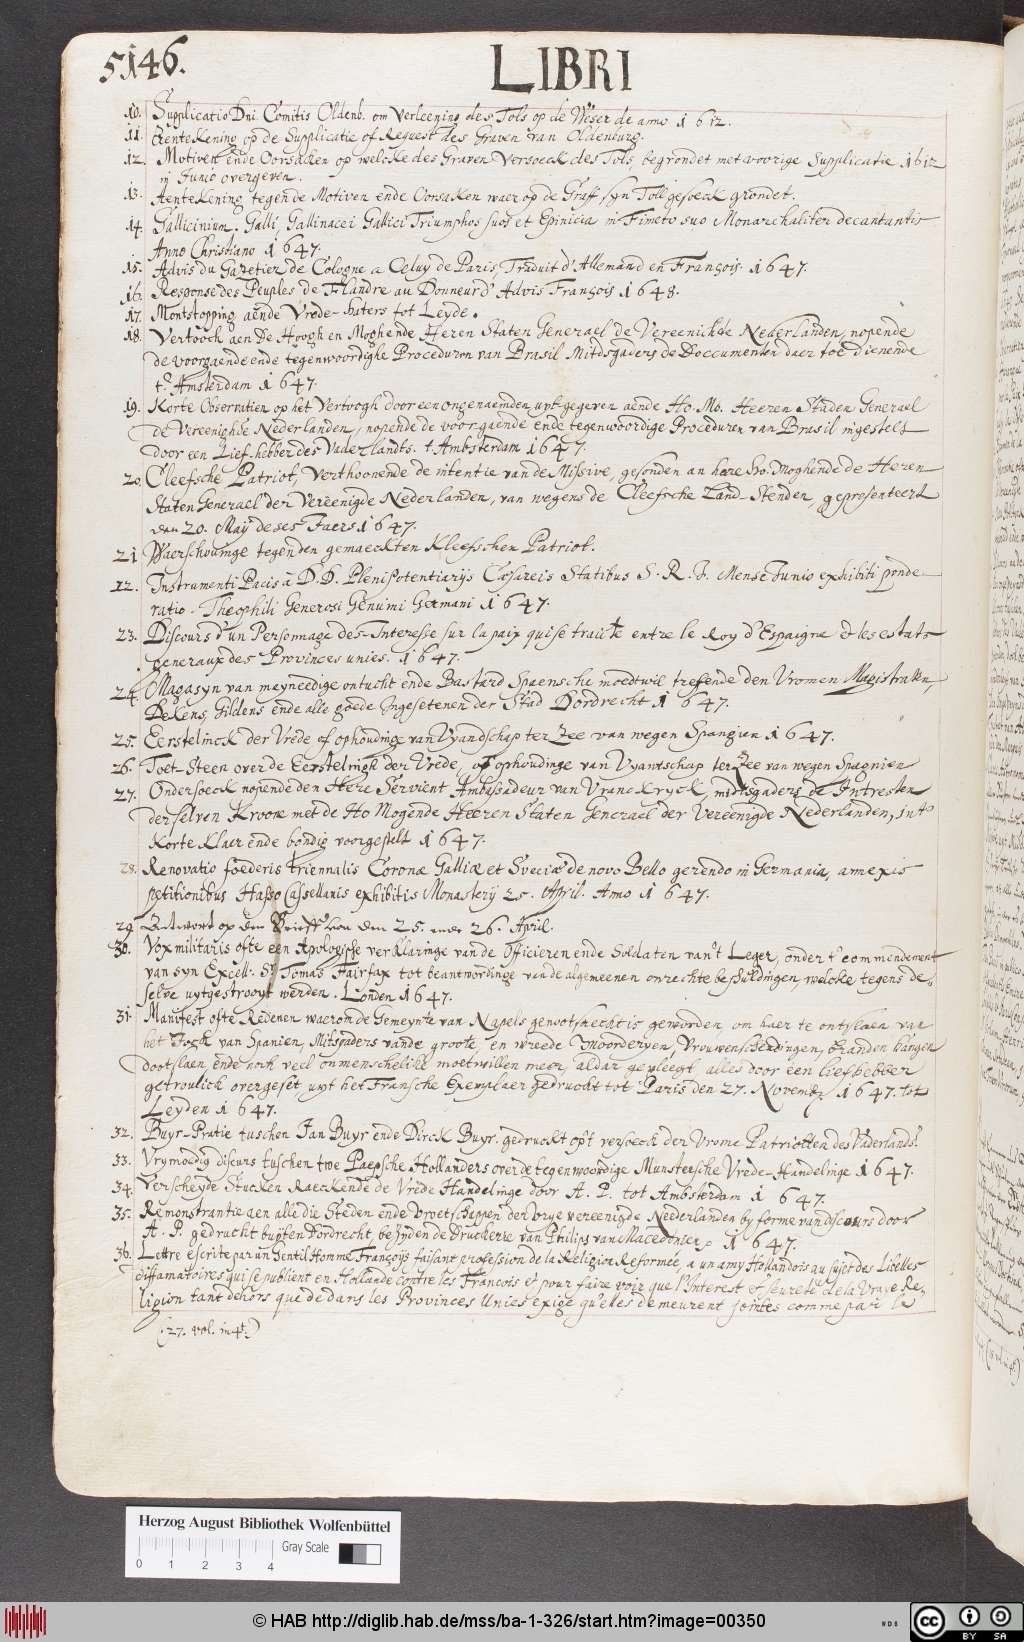 5146.
LIBRI
10. Supplicatio Dni. Comitis Oldenb. om Verleening des Tols op de Weser de anno 1612.
11. Aentekening op de Supplicatie of Request des Graven van Oldenburg.
12. Motiven ende Oorsaken op welcke des Graven Versoeck des Tols, begrondet met voorige Supplicatie 1612
in Junio overgeven.
13. Aentekening tegen de Motiven ende Oorsaken waer op de Graff syn Toll gesoeck grondet.
14. Gallicinium. Galli, Gallinacei Gallici Triumphos suos et Epinicia in Fimeto suo Monarchaliter decantantis
Anno Christiano 1647.
15. Advis du Gazetier de Cologne a Celuy de Paris, Traduit d'Allemand en François. 1647.
16. Response des Peuples de Flandre au Donneur d'Advis François 1648.
17. Montstopping aende Vrede-haters tot Leyde.
18. Vertooch aen De Hoogh en Moghende Heren Staten Generael de Vereenichde Nederlanden, nopende
de voorgaende ende tegenwoordighe Proceduren van Brasil Mitdsgaders de Doccumenten daer toe Dienende
t'Amsterdam 1647.
19. Korte Observatien op het Vertoogh door een ongenaemden uyt gegeven aende Ho. Mo. Heeren Staden Generael
De Vereenighde Nederlanden, nopende de voorgaende ende tegenwoordige Proceduren van Brasil ingestelt
door een Lief-hebber des Vaderlandts. t'Ambsterdam 1647.
20. Cleefsche Patriot, Verthoonende de intentie van de Missive, gesonden an hare Ho. Moghende de Heren
Staten Generael der Vereenigde Nederlanden, van wegens de Cleefsche Land-Stenden, gepresenteert
den 20. Maij deses Jaers 1647.
21 Waerschouwinge tegen den gemaeckten Kleefschen Patriot.
22. Instrumenti Pacis à D.D. Plenipotentiarijs Cæsareis Statibus S. R. I. Mense Junio exhibiti ponde-
ratio. Theophili Generosi Genuini Germani 1647.
23. Discours d'un Personnage des-Interesse sur la paix qui se traitte entre le Roy d'Espaigne et les estats
generaux des Provinces unies. 1647.
24. Magasyn van mayneedige ontucht ende Bastard Spaensche moedtwil treffende den Vromen Magistraten,
Dekens, Gildens ende alle goede Ingesetenen der Stad Dordrecht 1647.
25. Eerstelinck der Vrede of ophoudinge van Vyandschap ter Zee van wegen Spangien 1647.
26. Toet-Steen over de Eerstelingh der Vrede, of ophoudinge van Vyantschap ter Zee van wegen Spagnien
27. Ondersoeck nopende den Here Servient Ambassadeur van Vranckryck, midtsgaders de Intresten
derselven Kroone met de Ho Mogende Heeren Staten Generael der Vereenigde Nederlanden, int
Korte Klaer ende bondig voorgestelt 1647.
28. Renovatio foederis triennalis Coronæ Galliæ et Sveciæ de novo Bello gerendo in Germania, annexis
petitionibus Hasso Cassellanis exhibitis Monasterij 25. April. Anno 1647.
29. Antwort op den Brieff von den 25. 26. April.
30. Vox militaris ofte een Apologische verklaringe van de Officieren ende Soldaten van't Leger, onder t'commendement
van syn Excell. Sr Tomas Fairfax tot beantwordinge van de algemeenen onrechte beschuldingen, welcke tegens de-
selve uytgestrooyt werden. Londen 1647.
31. Manifest ofte Redenen waerom de Gemeynte van Napels genootsaeckt is geworden, om haer te ontslaen van
het Jock van Spanien, Mitsgaders van de groote en wreede Moorderyen, Vrouwenschendingen, branden hangen
dootslaen, ende noch veel onmenschelicke moetwillen meer, aldaer gepleegt alles door een liefhebber
getroulick overgeset uyt het Fransche Exemplaer gedruckt tot Paris den 27. Novembr 1647. tot
Leyden 1647.
32. Buyr-Pratie tuschen Jan Buyr ende Dirck Buyr. gedruckt op't versoeck der Vrome Patriotten des Vaderlands.
33. Vrymoedig discurs tuschen twe Paepsche Hollanders over de tegenwoordige Munstersche Vrede-Handelinge 1647.
34. Verscheyde Stucken Raeckende de Vrede Handelinge door A. P. tot Ambsterdam 1647.
35. Remonstrantie aen alle die Steden ende Vroetschappen der Vrye vereenigde Neederlanden by forme van discours door
A. P. gedruckt buyten Dordrecht, beneden de Druckerie van Philips van Macedonien 1647.
36. Lettre escrite par un Gentil Homme François faisant profession de la Religion Reformée, a un amy Hollandois au sujet des Libelles
diffamatoires qui se publient en Hollande contre les Francois et pour faire voir que l'Interest et seureté de la Vraye Re-
ligion tant dehors que dedans les Provinces Unies exige qu'elles demeurent jointes comme par le
(27. vol. in 4t.)
Herzog August Bibliothek Wolfenbüttel
Gray Scale
0 1 2 3 4
© HAB http://diglib.hab.de/mss/ba-1-326/start.htm?image=00350
WDB
CC BY SA